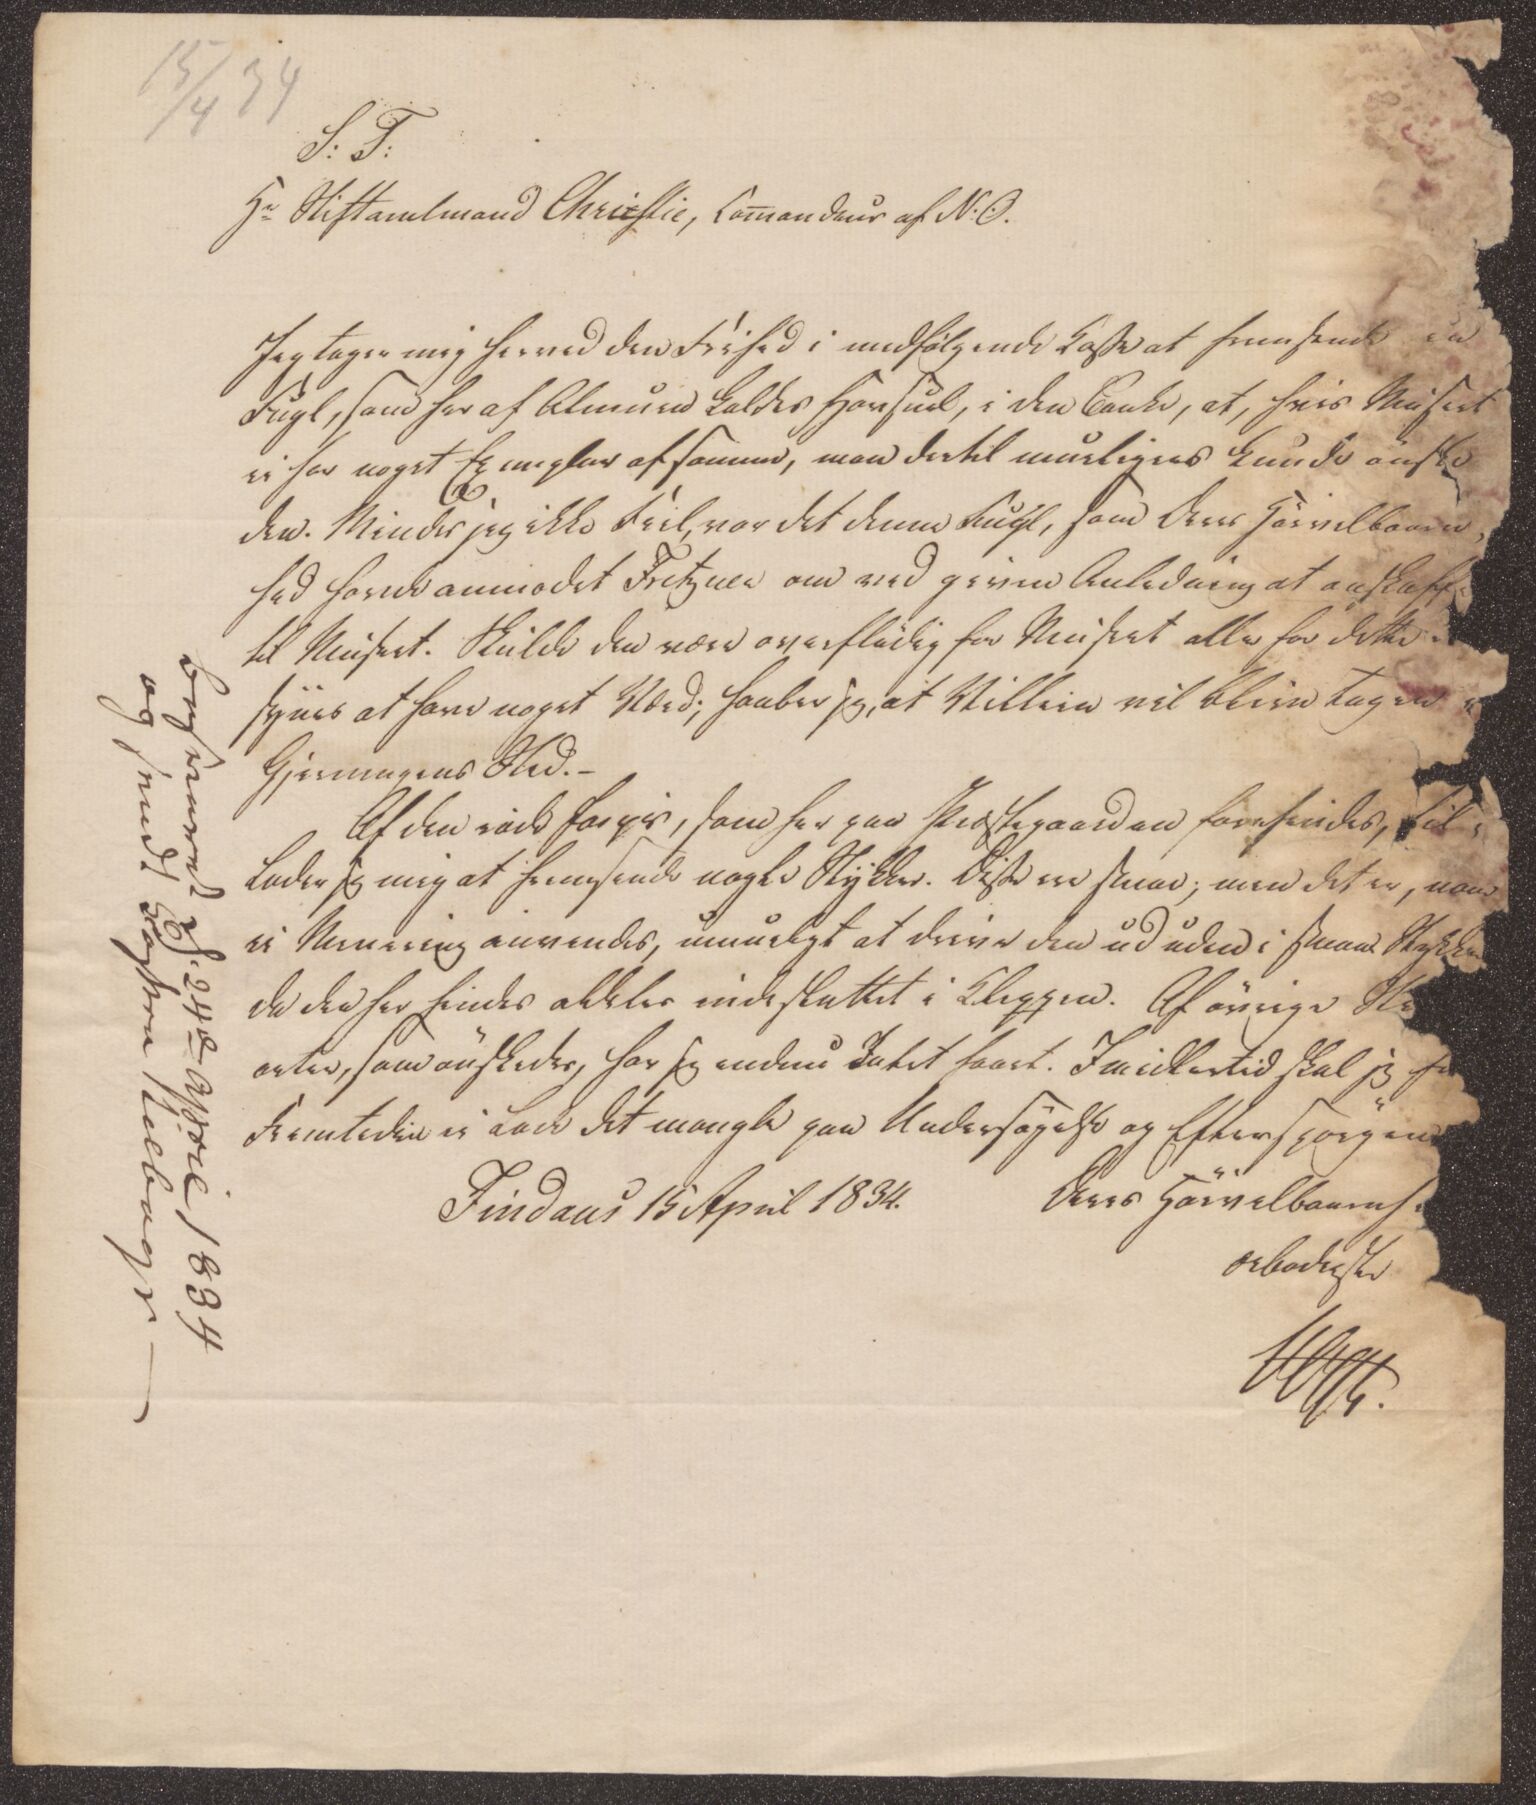 15/4 34
S: T:
Hr Stiftamtmand Christie, Com̅andeur af N: O.
Jeg tager mig herved den Frihed i medfølgende Kasse at fremsende en
Fugl, som her af Almuen kaldes Havsuul, i den Tanke, at, hvis Museet
ei har noget Exemplar af samme, man dertil mueligens kunde ønske
den. Mindes jeg ikke Feil, var det denne Fugl, som Deres Høivelbaaren-
hed havde anmodet Fritzner om ved given Anledning at anskaffe
til Museet. Skulde den være overflødig for Museet eller for dette
synes at have noget Værd; haaber jeg, at Villien vil blive tagen i
Gjerningens Sted.-
Af den røde Jaspis, som her paa Præstegaarden forefindes, til-
lader jeg mig at fremsende nogle Stykker. Disse ere smaae; men det er, naar
ei Minering anvendes, umueligt at drive den ud uden i smaae Stykker
da den her findes aldeles indesluttet i Klippen. Af øvrige
arter, som ønskedes, har jeg endnu Intet faaet. Imidlertid skal jeg
Fremtiden ei lade det mangle paa Undersøgelse og Efterspørgen
Findaas 15 April 1834.
Deres Høivelbaarenh.
ærbødigste
besvaret d. 24de April 1834
og sendt Kassen tilbage —